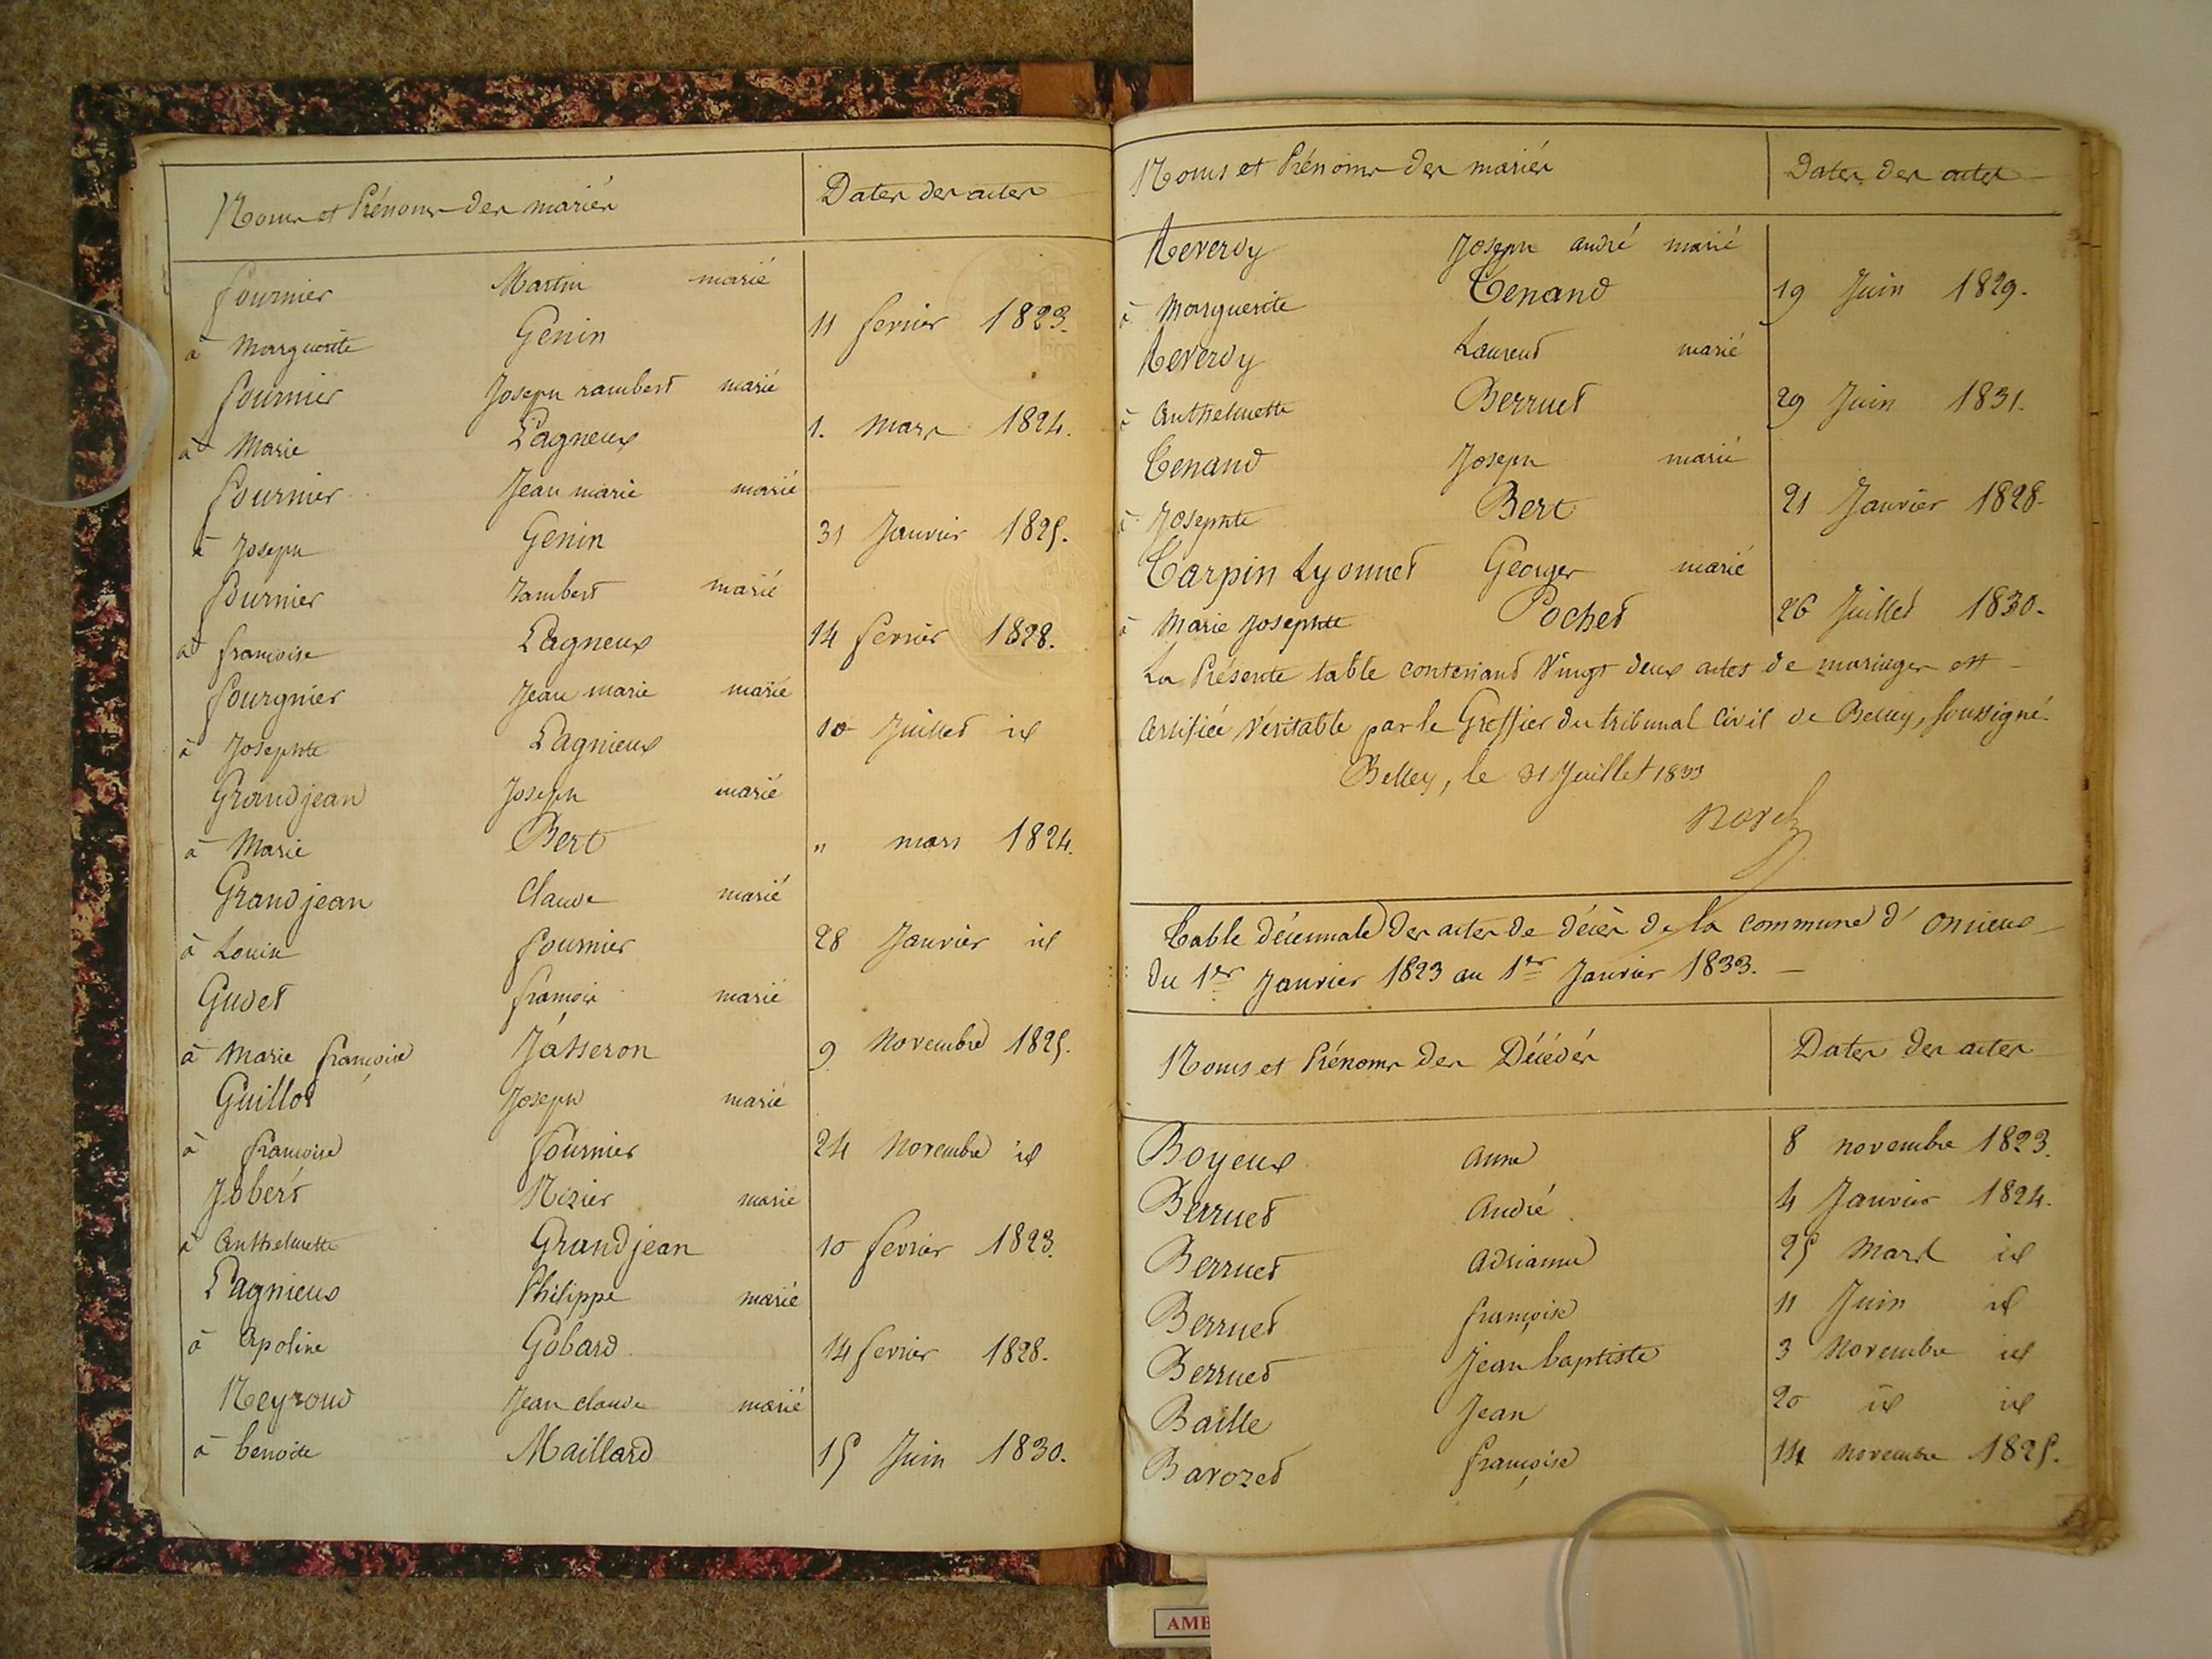 Noms et Prénoms des mariés Dates des actes
fournier Martin marié
à Marguerite Genin 11 fevrier 1823.
fournier Joseph rambert marié
à Marie Lagneux 1. Mars 1824.
fournier Jean marie marié
à Joseph Genin 31 Janvier 1825.
fournier rambert marié
à françoise Lagneux 14 fevrier 1828.
fourgnier Jean marie marié
à Josephte Lagnieux 10 Juillet id
Grandjean Joseph marié
à Marie Bert " mars 1824.
Grandjean Claude marié
à Louise fournier 28 Janvier id
Gudet françois marié
à Marie françoise Jasseron 9 Novembre 1825.
Guillot Joseph marié
à françoise fournier 24 Novembre id
Jobert Nizier marié
à Anthelmette Grandjean 10 fevrier 1823.
Lagnieux Philippe marié
à Apoline Gobard 14 fevrier 1828.
Neyroud Jean claude marié
à benoite Maillard 15 Juin 1830.
Noms et Prénoms des mariés Dates des actes
Reverdy Joseph andré marié
à Marguerite Tenand 19 Juin 1829.
Reverdy Laurent marié
à Anthelmette Berruet 29 Juin 1831.
Tenand Joseph marié
à Josephte Bert 21 Janvier 1828.
Tarpin Lyonnet Georges marié
à Marie Josephte Pochet 26 Juillet 1830.
La Présente table contenant Vingt deux actes de mariages est
Certifiée Véritable par le Greffier du tribunal Civil de Belley, soussigné
Belley, le 31 Juillet 1833
Table décennale des actes de décès de la commune d' Oncieux
du 1er Janvier 1823 au 1er Janvier 1833.
Noms et Prénoms des Décédés Dates des actes
Boyeux Anne 8 novembre 1823.
Berruet André 4 Janvier 1824.
Berruet Adrianne 25 Mars id
Berruet françoise 11 Juin id
Berruet Jean baptiste 3 Novembre id
Baille Jean 20 id id
Barozet françoise 14 novembre 1825.